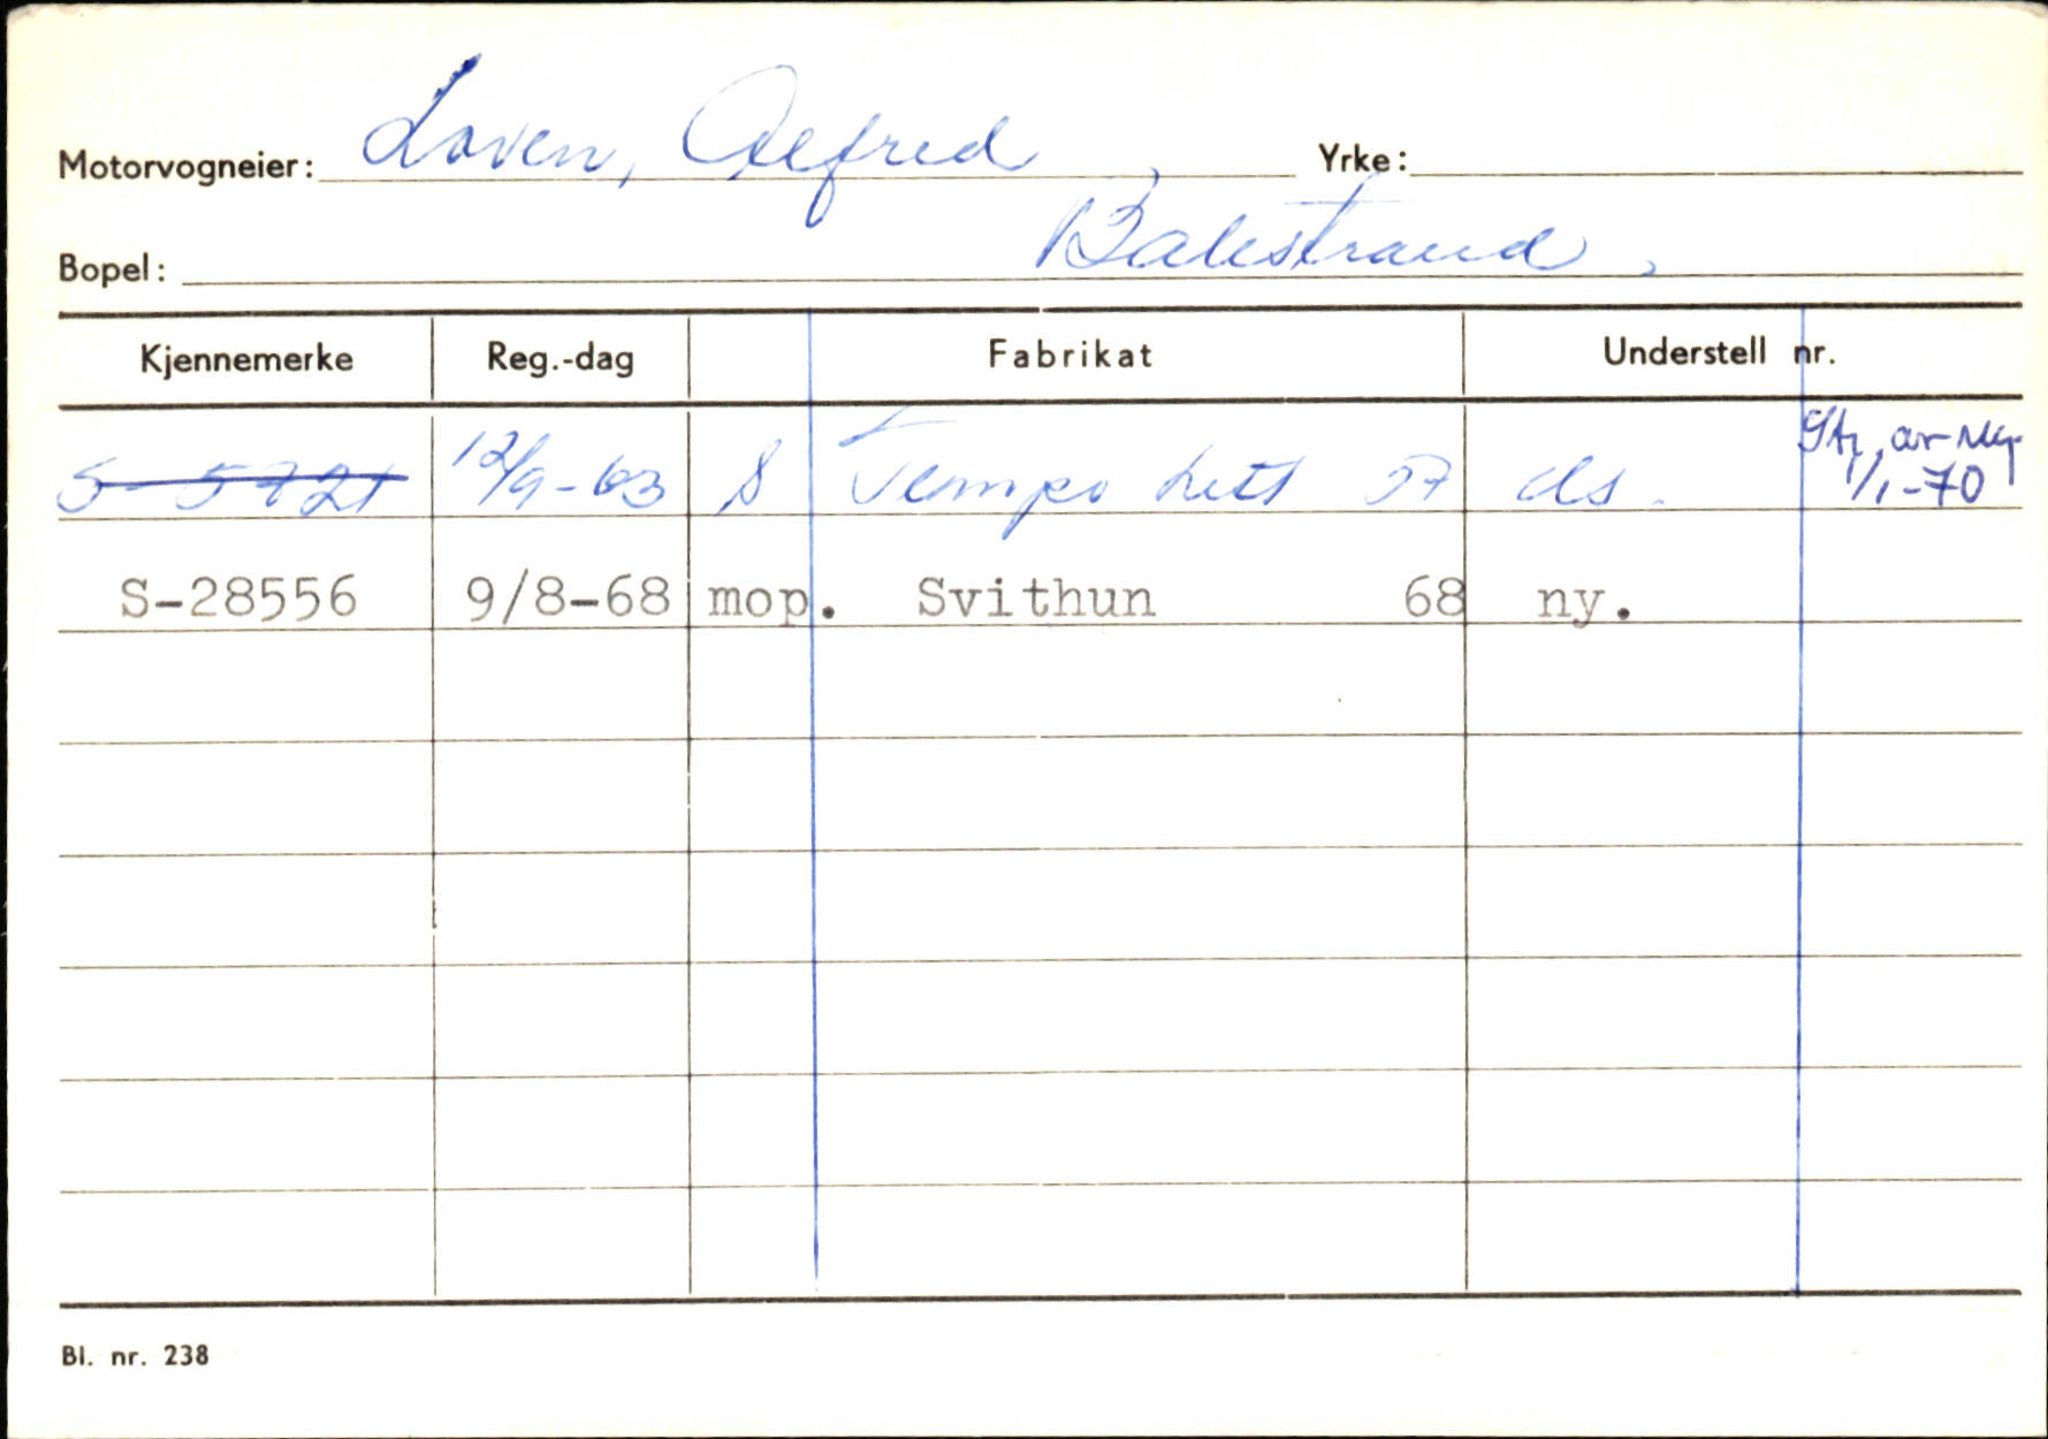 Motorvogneier: Loven, Alfred , Yrke:
Bopel: Balestrand .
Kjennemerke Reg.-dag Fabrikat Understell nr.
S-5721 12/9-63 S Tempo Lett 57 ds. Str. av reg. 1/1-70
S-28556 9/8-68 mop. Svithun 68 ny.
Bl. nr. 238